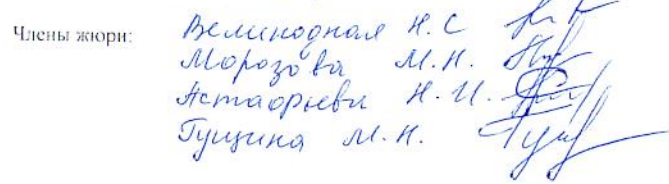 Члены жюри: Великодная Н.С
Морозова М.Н.
Астафьева Н.И.
Гущина М.Н.